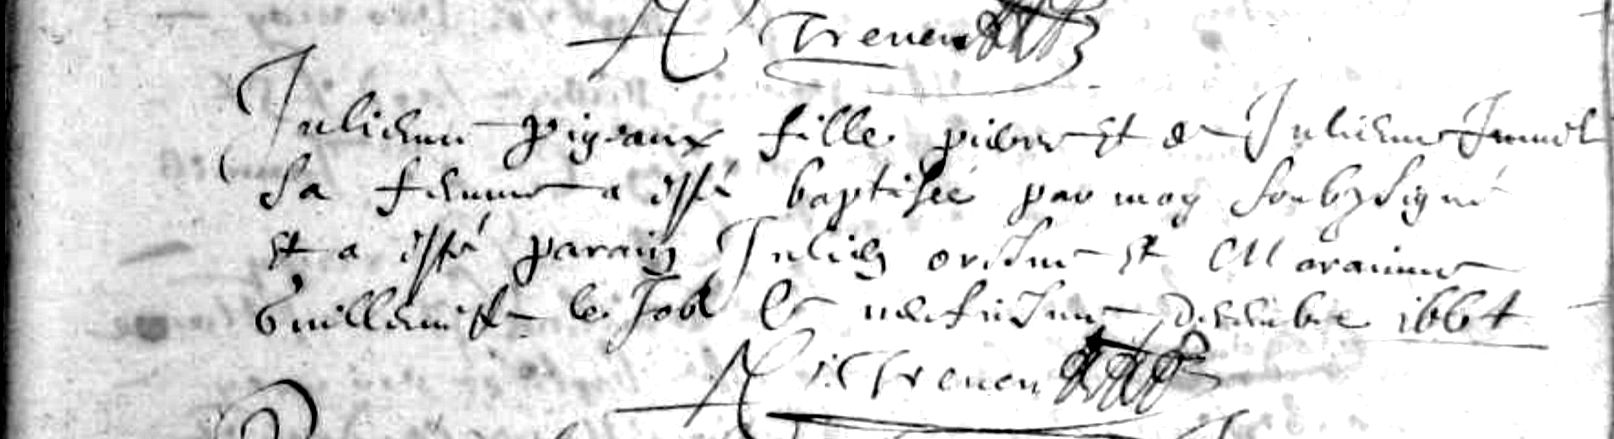 Trenen
Julienne pigeaux fille pierre et de Julienne
sa femme a esté baptisée par moy soubzsigné
et a esté parain Julien et Marainne
Guillemette le Job le neufiesme decembre 1664
Trenen